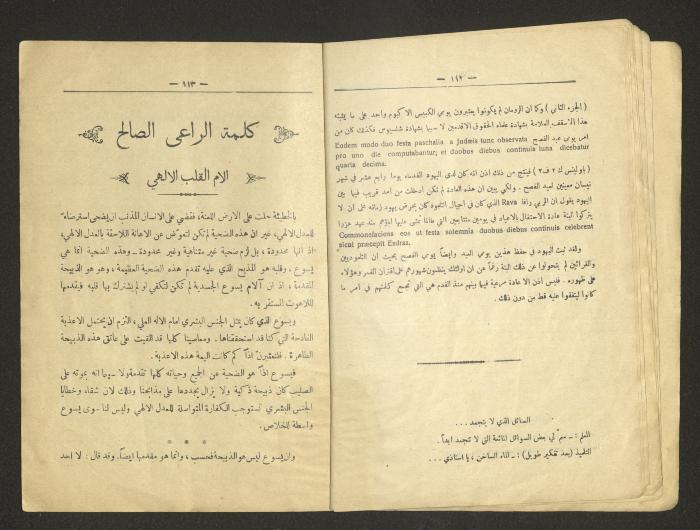 — ١١٢ —
( الجزء الثاني ) وكما ان الرومان لم يكونوا يعتبرون يومي الكبيس الا كيوم واحد على ما يثبته
هذا الاسقف العلامة بشهادة علماء الحقوق الاقدمين لا سيما بشهادة شلسيوس فكذلك كان من
امر يومي عيد الفصح Eodem modo duo festa paschalia a Judæis tunc observata
pro uno die computabantur; et duobus diebus continuis luna dicebatur
quarta decima.
( باولينس ك ٢ ف ٢ ) فينتج من ذلك اذن انه كان لدى اليهود القدماء يوما رابع عشر في شهر
نيسان معينين لعيد الفصح . ولكي يبين ان هذه العادة لم تكن ادخلت من امد قريب فيما بين
اليهود يقول ان الربي رافا Rava الذي كان في اجيال التلمود كان يحرض يهود زمانه على ان لا
يتركوا البتة عادة الاحتفال بالاعياد في يومين متتابعين التي طالما مشى عليها آباؤهم منذ عهد عزرا
Commonefaciens eos ut festa solemnia duobus diebus continuis celebrent
sicut præcepit Esdras.
ولقد ثبت اليهود في حفظ هذين يومي العيد وايضاً يومي الفصح بحيث ان التلموديين
والقرائين لم يتحولوا عن ذلك البتة رغماً عن ان اولئك ينظمون شهورهم على اقتران القمر وهؤلاء
على ظهوره . فليس اذن الا عادة مرعية فيما بينهم منذ القدم هي التي تجمع كلمتهم في امر ما
كانوا ليتفقوا عليه قط من دون ذلك .
السائل الذي لا يتجمد ...
المعلم : ـ سمِّ لي بعض السوائل المائعة التي لا تتجمد ابداً .
التلميذ (بعد تفكير طويل) : ـ الماء الساخن ، يا استاذي ...
— ١١٣ —
كلمة الراعي الصالح
آلام القلب الالهي
بالخطيئة حلت على الارض اللعنة ، فقضي على الانسان المذنب ان يضحي استرضاءً
للعدل الالهي ، غير ان هذه الضحية لم تكن لتعوض عن الاهانة اللاحقة بالعدل الالهي ،
اذ انها محدودة ، بل لزم ضحية غير متناهية وغير محدودة ــ وهذه الضحية انما هي
يسوع ، وقلبه هو المذبح الذي عليه تقدم هذه الضحية العظيمة ، وهو هو الذبيحة
المقدمة ، اذ ان آلام يسوع الجسدية لم تكن لتكفي لو لم يشترك بها قلبه فيقدمها
للاهوت المستقر به .
ويسوع الذي كان يمثل الجنس البشري امام الاله العلي ، التزم ان يحتمل الاعذبة
الفادحة التي كنا قد استحققناها . ومعاصينا كلها قد القيت على عاتق هذه الذبيحة
الطاهرة . فلنعتبرن اذاً كم كانت اليمة هذه الاعذبة .
فيسوع اذاً هو الضحية عن الجميع وحياته كلها تقدمة ولا سيما انه بموته على
الصليب كان ذبيحة ذكية ولا يزال يجددها على مذابحنا وذلك لان شقاء وخطايا
الجنس البشري تستوجب الكفارة المتواصلة للعدل الالهي وليس لنا سوى يسوع
واسطة للخلاص .
* * *
وان يسوع ليس هو الذبيحة فحسب ، وانما هو مقدمها ايضاً . وقد قال : لا احد